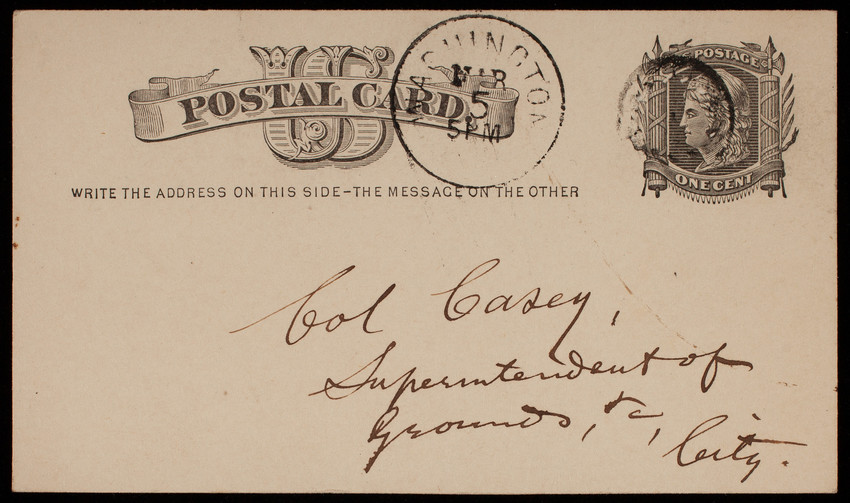 US
POSTAL CARD
WASHINGTON
MAR
5
5PM
POSTAGE
ONE CENT
WRITE THE ADDRESS ON THIS SIDE-THE MESSAGE ON THE OTHER
Col Casey,
Superintendent of
Grounds, &c,
City.